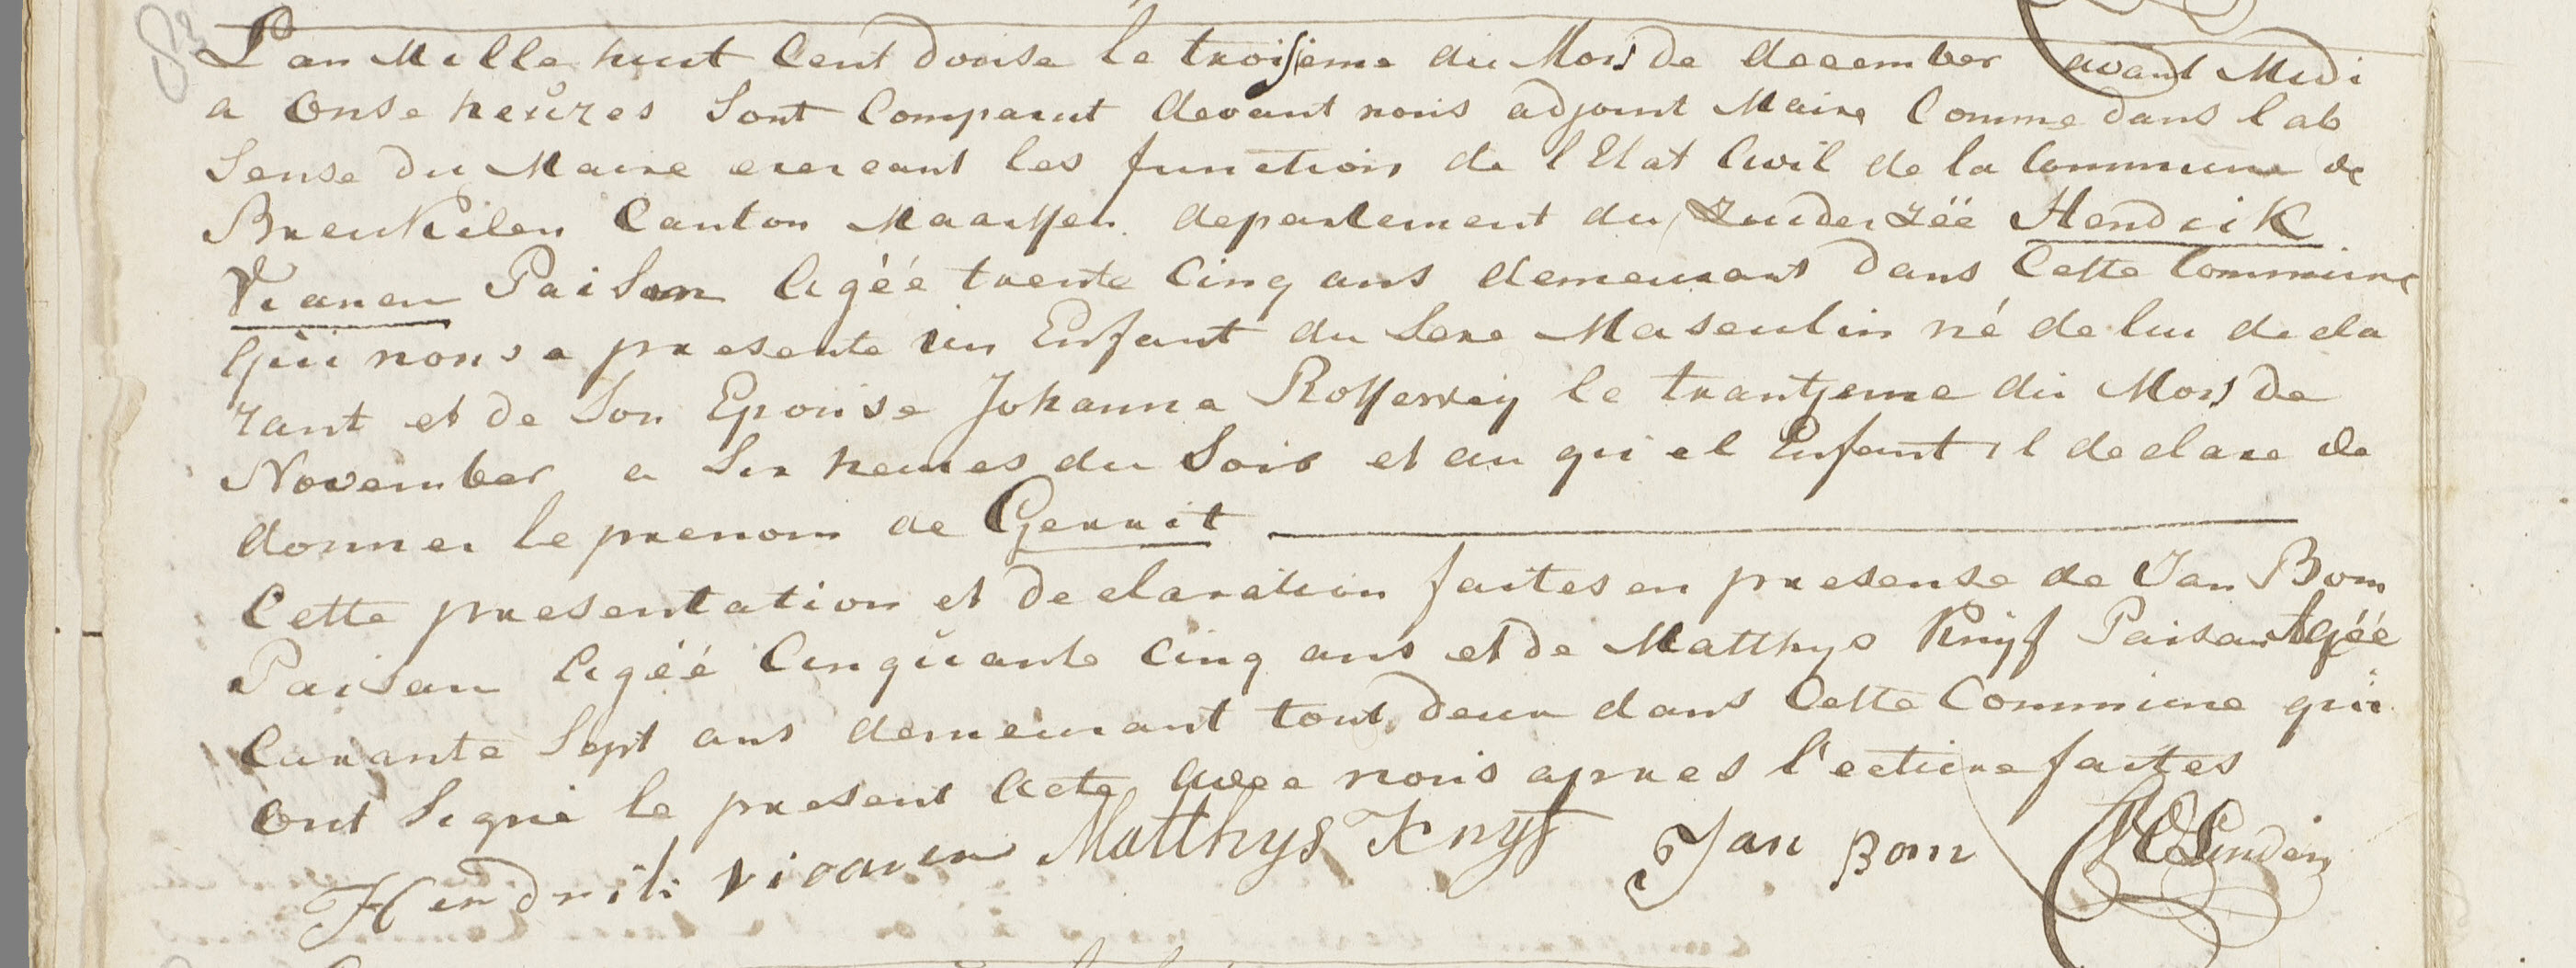 L'an Mille huit Cent douse le troisieme du Mois de december avant Midi
a Onse heures Sont Comparut devant nous adjoint Maire Comme dans l ab
Sense du Maire exercant les function de l Etat Civil de la Commune de
Breukelen Canton Maarssen departement du Zuiderzéé Hendrik
Vianen Paisan Agéé trente Cinq ans demeurant dans Cette Commune
Qui nous a presente un Enfant du Sexe Masculin né de lui decla
rant et de Son Epouse Johanna Rosserweij le trantjeme du Mois de
November a Six heures du Soir et au qu el Enfant il declare de
donner le prenom de Gerrit
Cette presentation et declaration faites en presense de Jan Bom
Paisan Agéé Cinquante Cinq ans et de Matthys Knijf Paisan Agéé
Carante Sept ans demeurant tout deux dans Cette Commune qui
Ont Signé le present Acte avec nous apres l'ecture faites
Hendrik vioanen Matthys Knyf Jan Bom